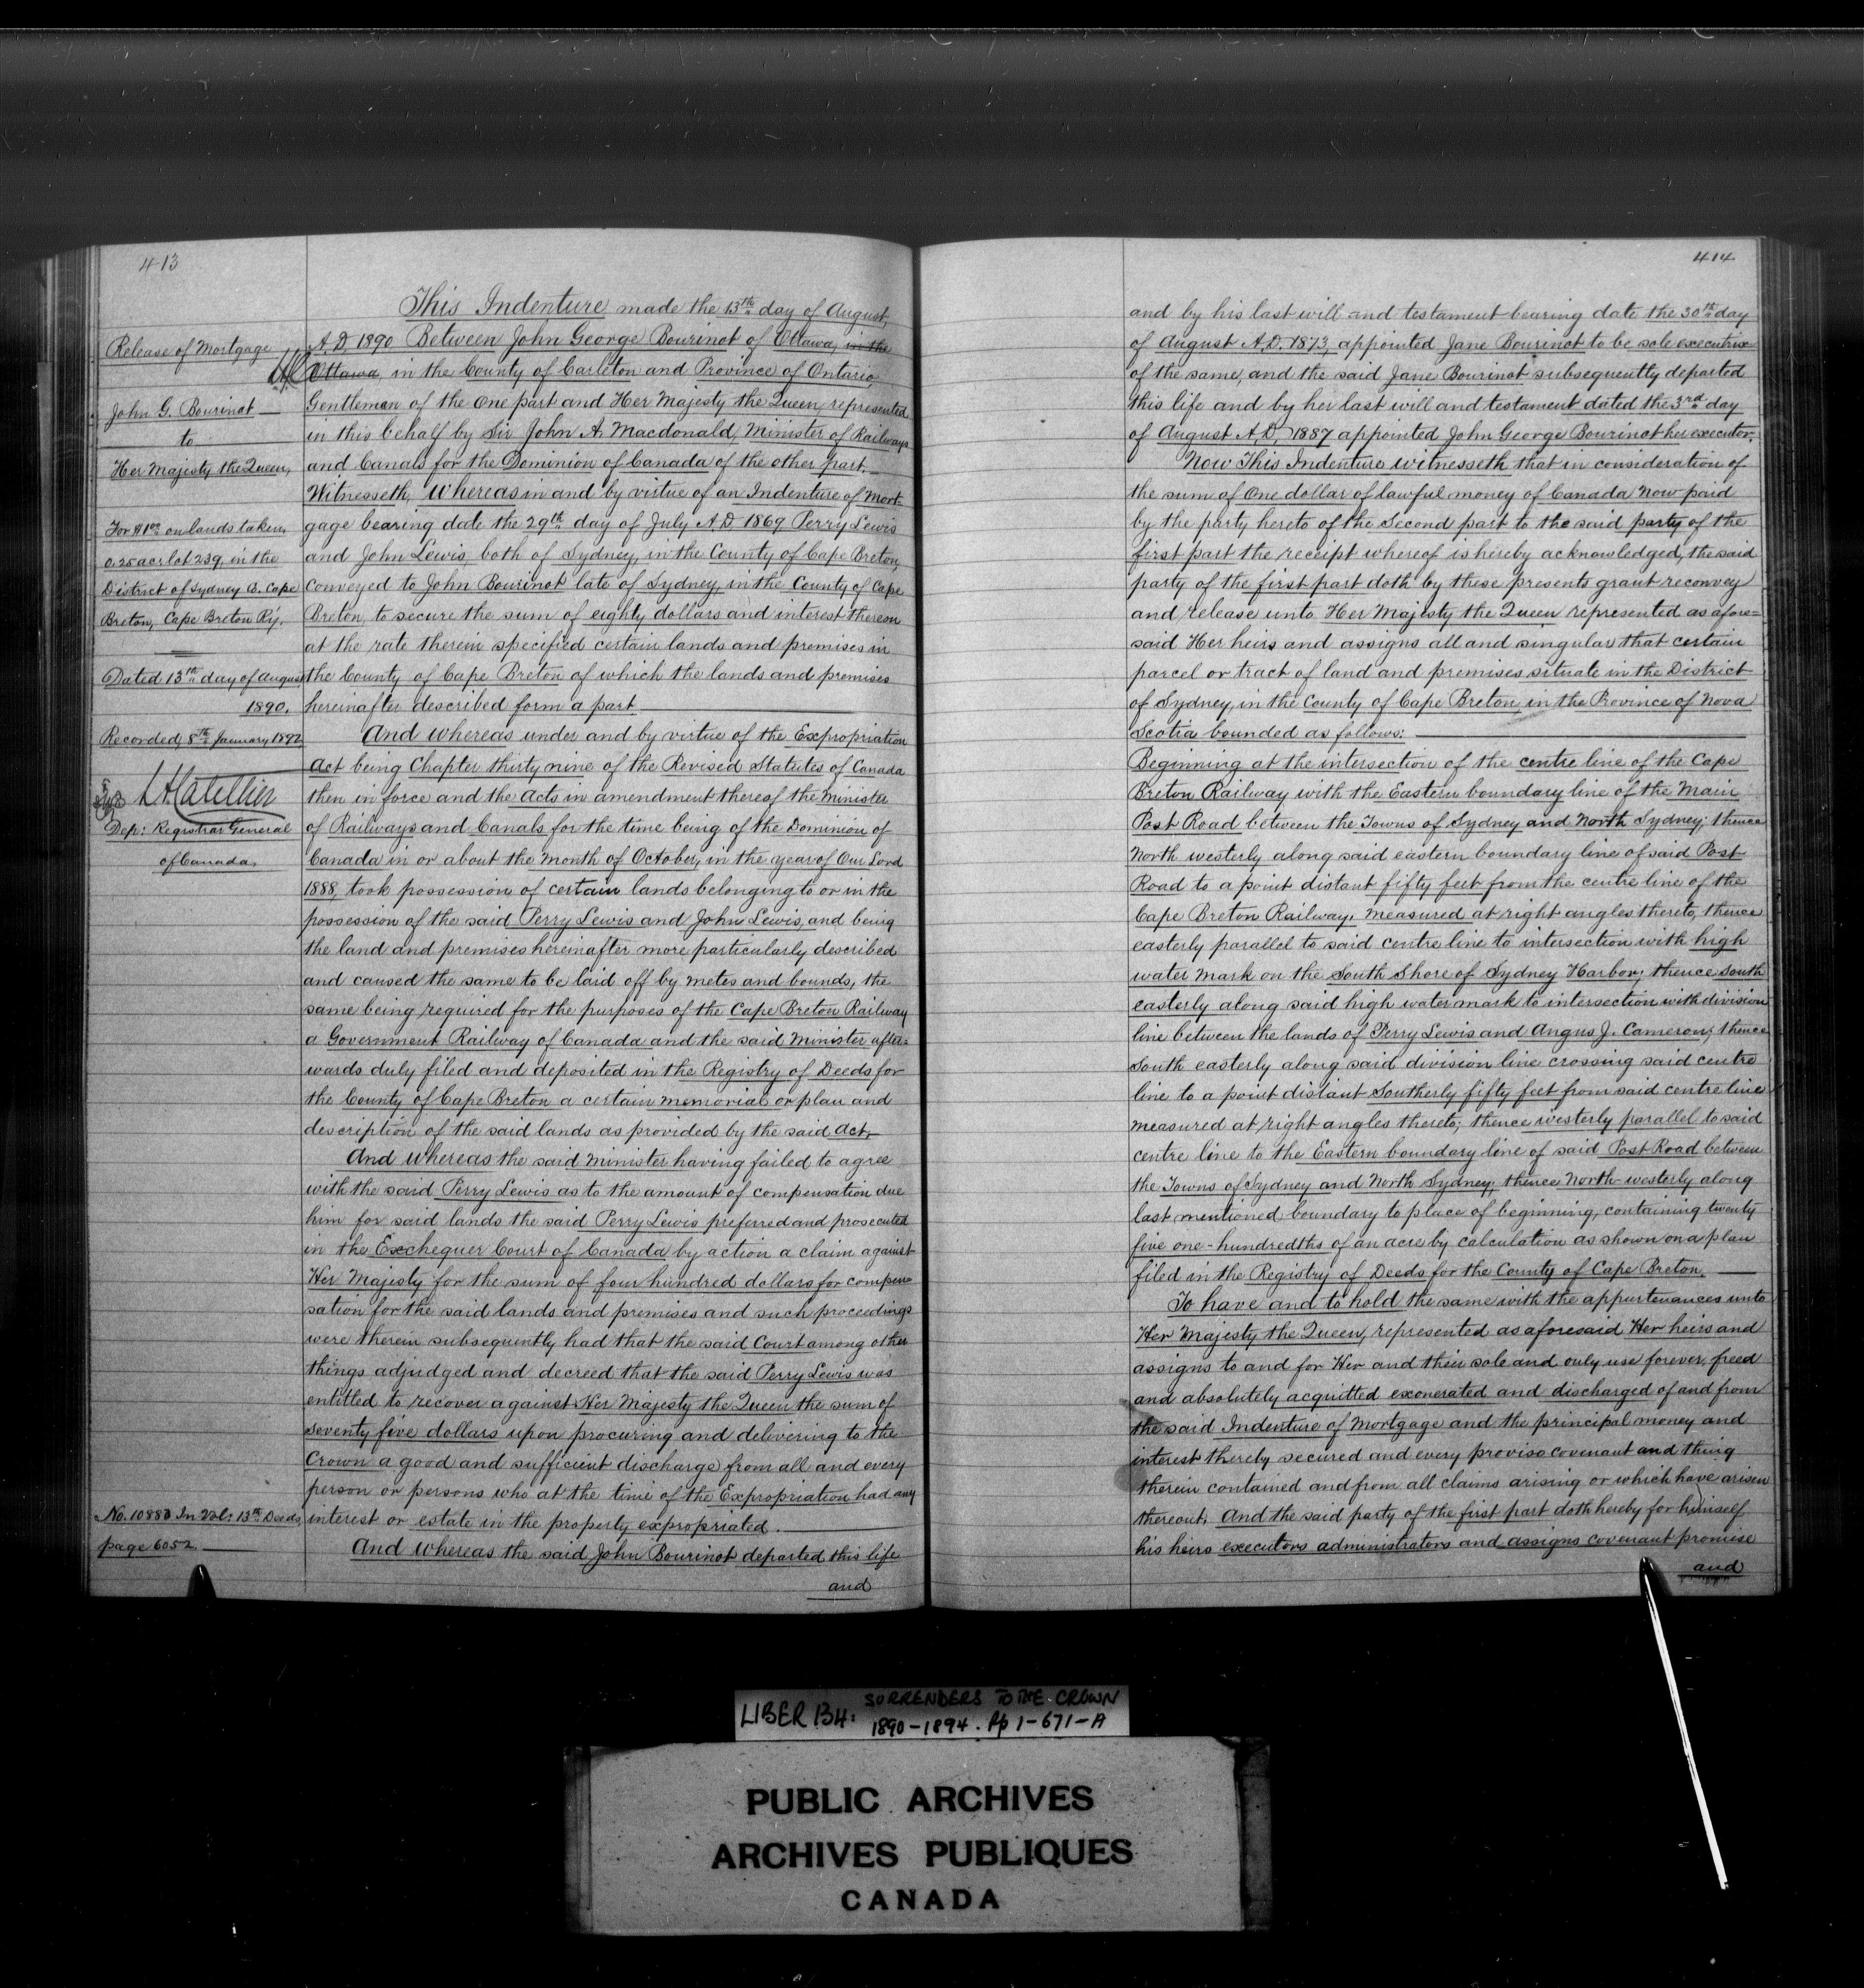 413
Release of Mortgage
John G. Bourinot
to
Her Majesty the Queen,
For $1.00 on lands taken,
0.25 acs lot 239, in the
District of Sydney C. Cape
Breton, Cape Breton Ry.
Dated 13th day of August
1890.
Recorded, 8th January 1892
LACatellier
Dep: Registrar General
of Canada,
No. 10883 In Vol: 13th Deeds,
page 6052
This Indenture made the 13th day of August,
A.D. 1890 Between John George Bourinot of Ottawa, in the
Ottawa, in the County of Carleton and Province of Ontario,
Gentleman of the one part and Her Majesty the Queen, represented
in this behalf by Sir John A. Macdonald, Minister of Railways
and Canals for the Dominion of Canada of the other part.
Witnesseth, Whereas in and by virtue of an Indenture of Mort-
gage bearing date the 29th day of July A.D. 1869 Perry Lewis
and John Lewis, both of Sydney, in the County of Cape Breton,
conveyed to John Bourinot late of Sydney, in the County of Cape
Breton, to secure the sum of eighty dollars and interest thereon
at the rate therein specified certain lands and premises in
the County of Cape Breton of which the lands and premises
hereinafter described form a part
And whereas under and by virtue of the Expropriation
Act being Chapter thirty nine of the Revised Statutes of Canada
then in force and the Acts in amendment thereof the Minister
of Railways and Canals for the time being of the Dominion of
Canada in or about the month of October, in the year of Our Lord
1888, took possession of certain lands belonging to or in the
possession of the said Perry Lewis and John Lewis, and being
the land and premises hereinafter more particularly described
and caused the same to be laid off by metes and bounds, the
same being required for the purposes of the Cape Breton Railway
a Government Railway of Canada and the said Minister after=
wards duly filed and deposited in the Registry of Deeds for
the County of Cape Breton a certain memorial or plan and
description of the said lands as provided by the said Act,
And whereas the said Minister having failed to agree
with the said Perry Lewis as to the amount of compensation due
him for said lands the said Perry Lewis preferred and prosecuted
in the Exchequer Court of Canada by action a claim against
Her Majesty for the sum of four hundred dollars for compen
sation for the said lands and premises and such proceedings
were therein subsequently had that the said Court among other
things adjudged and decreed that the said Perry Lewis was
entitled to recover against Her Majesty the Queen the sum of
seventy five dollars upon procuring and delivering to the
Crown a good and sufficient discharge from all and every
person or persons who at the time of the Expropriation had any
interest or estate in the property expropriated.
And whereas the said John Bourinot departed this life
and
414
and by his last will and testament bearing date the 30th day
of August A.D. 1873, appointed Jane Bourinot to be sole executrix
of the same, and the said Jane Bourinot subsequently departed
this life and by her last will and testament dated the 3rd day
of August A.D. 1887 appointed John George Bourinot her executor,
Now This Indenture witnesseth that in consideration of
the sum of One dollar of lawful money of Canada now paid
by the party hereto of the second part to the said party of the
first part the receipt whereof is hereby acknowledged, the said
party of the first part doth by these presents grant reconvey
and release unto Her Majesty the Queen represented as afore=
said Her heirs and assigns all and singular that certain
parcel or tract of land and premises situate in the District
of Sydney, in the County of Cape Breton, in the Province of Nova
Scotia bounded as follows:
Beginning at the intersection of the centre line of the Cape
Breton Railway with the Eastern boundary line of the Main
Post Road between the Towns of Sydney and North Sydney; thence
North westerly along said eastern boundary line of said Post
Road to a point distant fifty feet from the centre line of the
Cape Breton Railway, measured at right angles thereto, thence
easterly parallel to said centre line to intersection with high
water mark on the South Shore of Sydney Harbor; thence south
easterly along said high water mark to intersection with division
line between the lands of Perry Lewis and Angus J. Cameron; thence
South easterly along said division line crossing said centre
line to a point distant Southerly fifty feet from said centre line
measured at right angles thereto; thence westerly parallel to said
centre line to the Eastern boundary line of said Post Road between
the Towns of Sydney and North Sydney; thence North-westerly along
last mentioned boundary to place of beginning, containing twenty
five one-hundredths of an acre by calculation as shown on a plan
filed in the Registry of Deeds for the County of Cape Breton.
To have and to hold the same with the appurtenances unto
Her Majesty, the Queen, represented as aforesaid Her heirs and
assigns to and for Her and their sole and only use forever, freed
and absolutely acquitted exonerated and discharged of and from
the said Indenture of Mortgage and the principal money and
interest thereby secured and every proviso covenant and thing
therein contained and from all claims arising or which have arisen
thereout. And the said party of the first part doth hereby for himself
his heirs executors administrators and assigns covenant promise
and
LIBER 134: SURRENDERS TO THE CROWN
1890-1894. Pp 1-671-A
PUBLIC ARCHIVES
ARCHIVES PUBLIQUES
CANADA